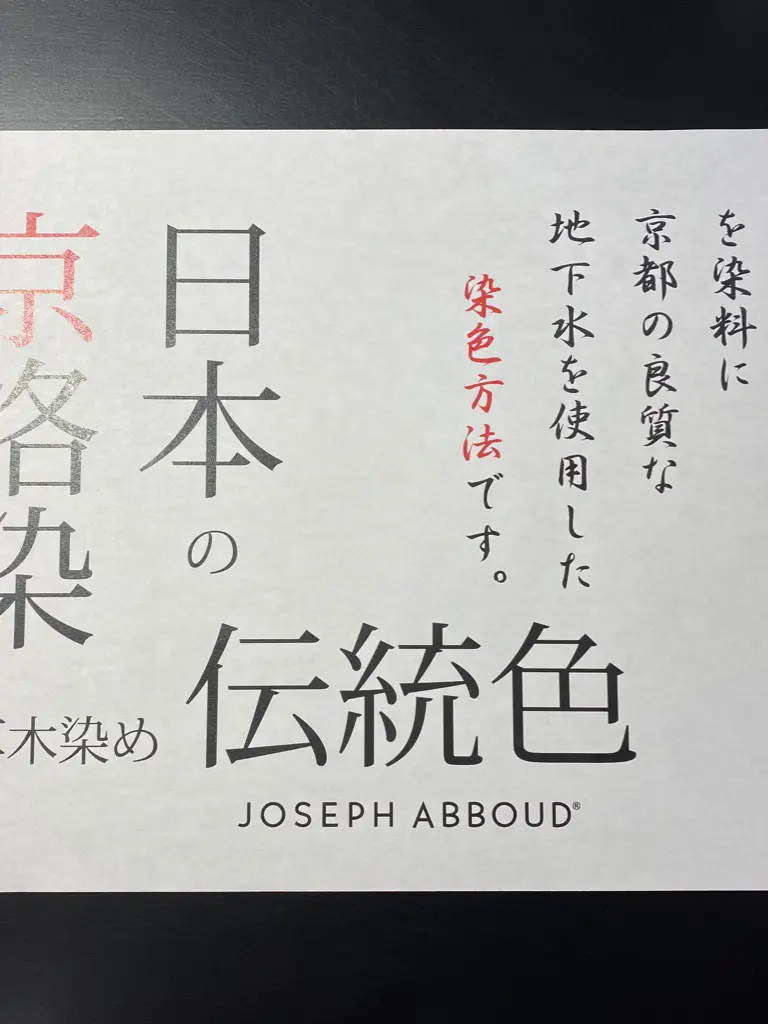 を染料に
京都の良質な
地下水を使用した
染色方法です。
日本の
伝統色
京洛染
木染め
JOSEPH ABBOUD®